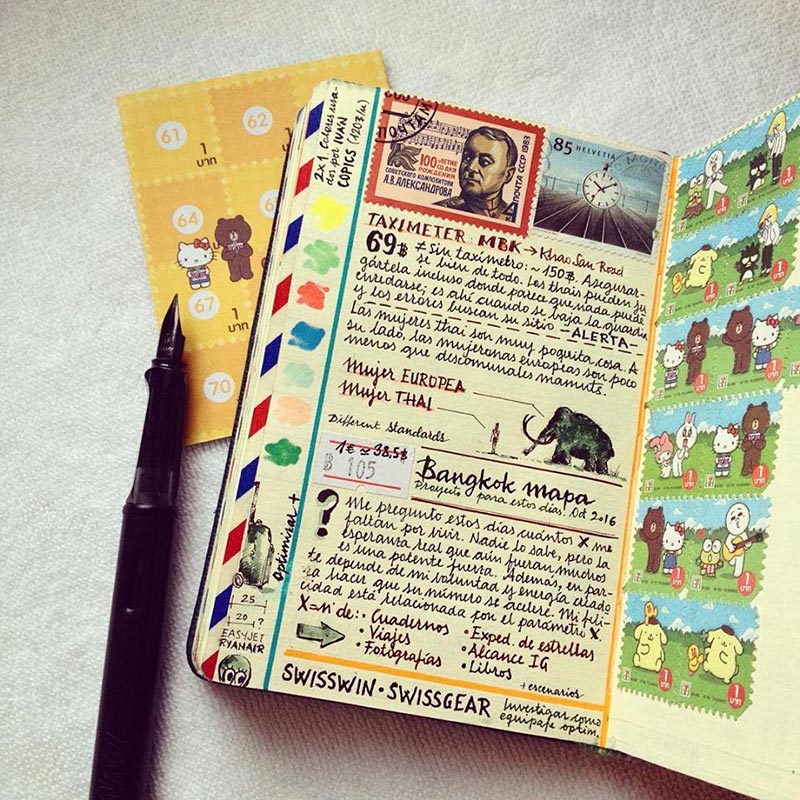 61
62
1
บาท
64
67
1
บาท
70
2x1 Colores usa-
dos por IVAN
COPICS (1203/u)
ПОЧТАМ
100-ЛЕТИЕ
СО ДНЯ
РОЖДЕНИЯ
СОВЕТСКОГО КОМПОЗИТОРА
А.В.АЛЕКСАНДРОВА
ПОЧТА СССР 1983
85 HELVETIA
TAXIMETER: MBK → Khao San Road
69฿ ≠ Sin taxímetro: ~ 150฿. Asegurar-
se bien de todo. Los thais pueden ju-
gártela incluso donde parece que nada puede
enredarse; es ahí cuando se baja la guardia
y los errores buscan su sitio — ALERTA —
Las mujeres thai son muy poquita cosa. A
su lado, las mujeronas europeas son poco
menos que descomunales mamuts.
Mujer EUROPEA
Mujer THAI
Different Standards
1€ ≃ 38,5฿
฿ 105
Bangkok mapa
Proyecto para estos días! Oct 2016
? Me pregunto estos días cuántos X me
faltan por vivir. Nadie lo sabe, pero la
esperanza real que aún fueran muchos
es una potente fuerza. Además, en par-
te depende de mi voluntad y energía el
hacer que su número se acelere. Mi feli-
cidad está relacionada por el parámetro X
X=nº de: • Cuadernos
• Viajes
• Fotografías
• Exped. de estrellas
• Alcance IG
• Libros
+ escenarios
Optimizar +
25
20 ?
EASYJET
RYANAIR
SWISSWIN · SWISSGEAR
Investigar como
equipaje optim.
1 บาท
7-ELEVEN
LAMY